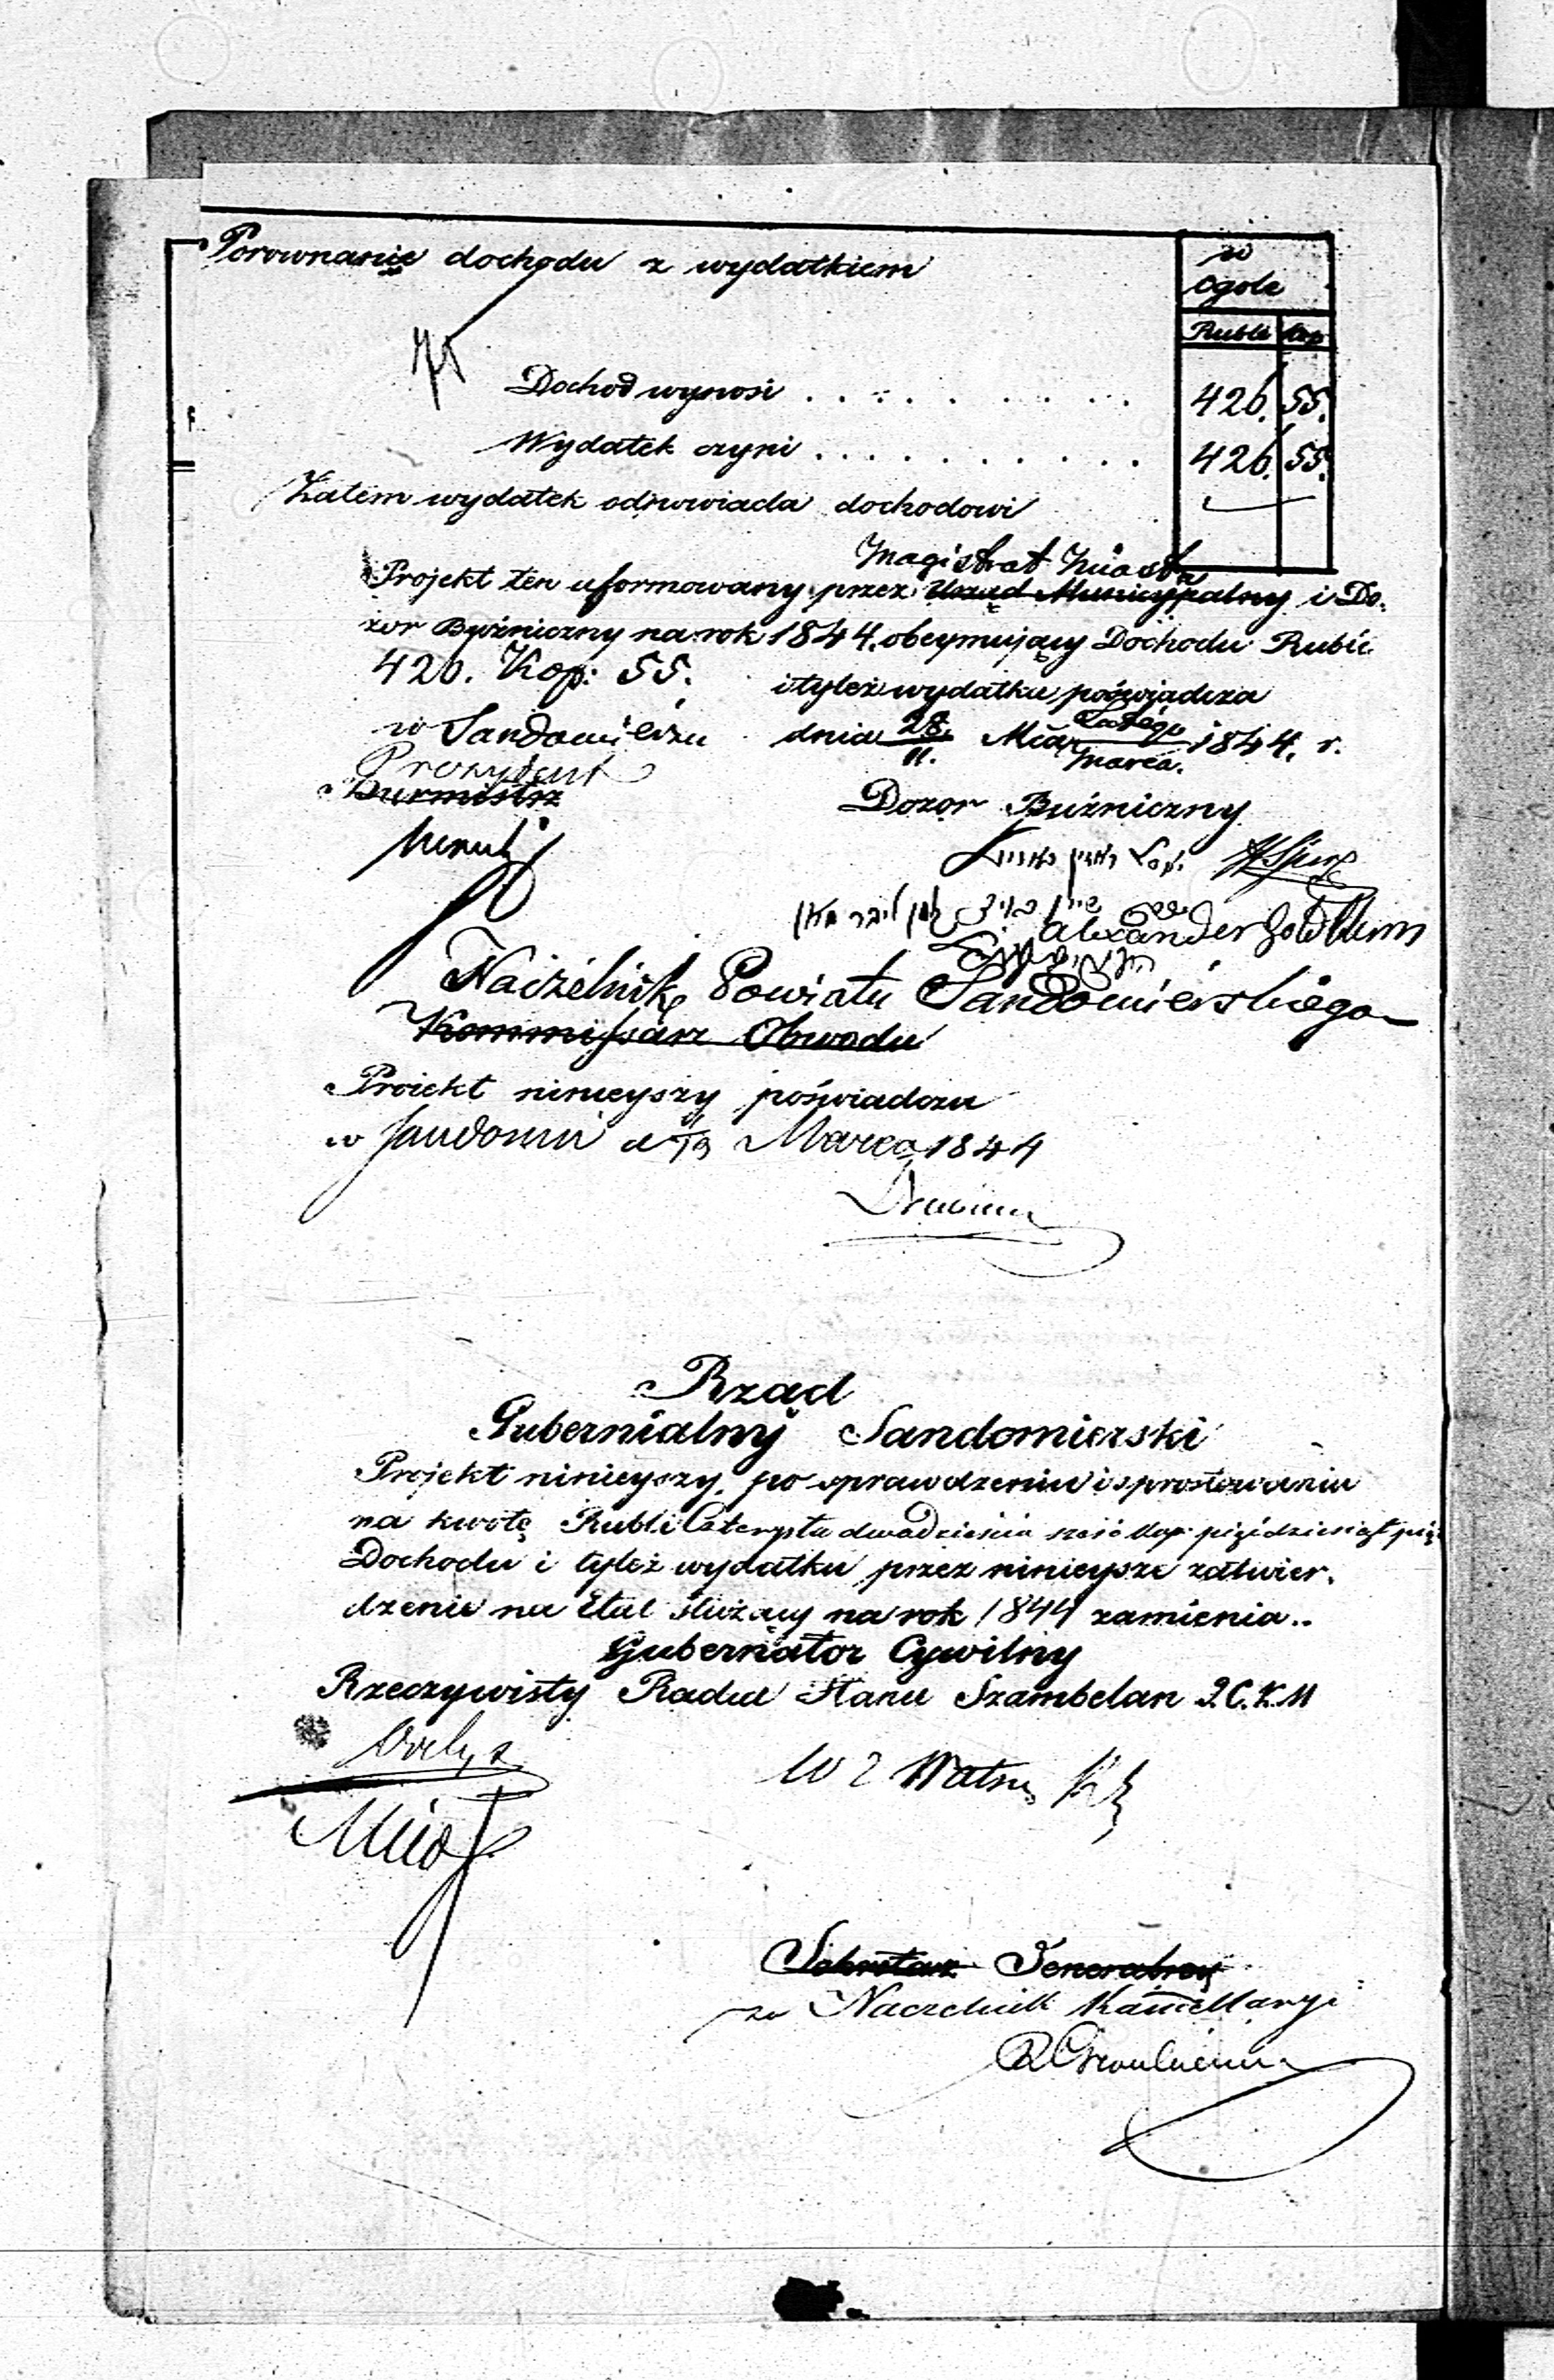 Porownanie dochodu z wydatkiem
w
Ogole
Rubli Kop
Dochod wynosi . . . . . . . . . . 426. 55.
Wydatek czyni . . . . . . . . . . 426. 55.
Zatem wydatek odpowiada dochodowi
Magistrat Miasta
Projekt ten uformowany przez Urząd Municypalny i Do-
zor Bużniczny na rok 1844. obeymujący Dochodu Rubli
426. Kop: 55. i tyleż wydatku poświadcza
w Sandomierzu dnia 28./11. Mca Lutego/Marca. 1844. r.
Prezydent
Burmistrz
Dozor Bużniczny
Alexander Goldblum
Naczelnik Powiatu Sandomierskiego
Kommissarz Obwodu
Proiekt ninieyszy poświadcza
w Sandomi d Marca 1844
Rząd
Gubernialny Sandomierski
Projekt ninieyszy, po sprawdzeniu i sprostowaniu
na kwotę Rubli Czterysta dwadzieścia sześć Kop: pięćdziesiąt pięć
Dochodu i tyleż wydatku przez ninieysze zatwier-
dzenie na Etat służący na rok 1844 zamienia..
Gubernator Cywilny
Rzeczywisty Radca Stanu Szambelan J.C.K.M
Sekretarz Jeneralny
za Naczelnik Kancellaryi